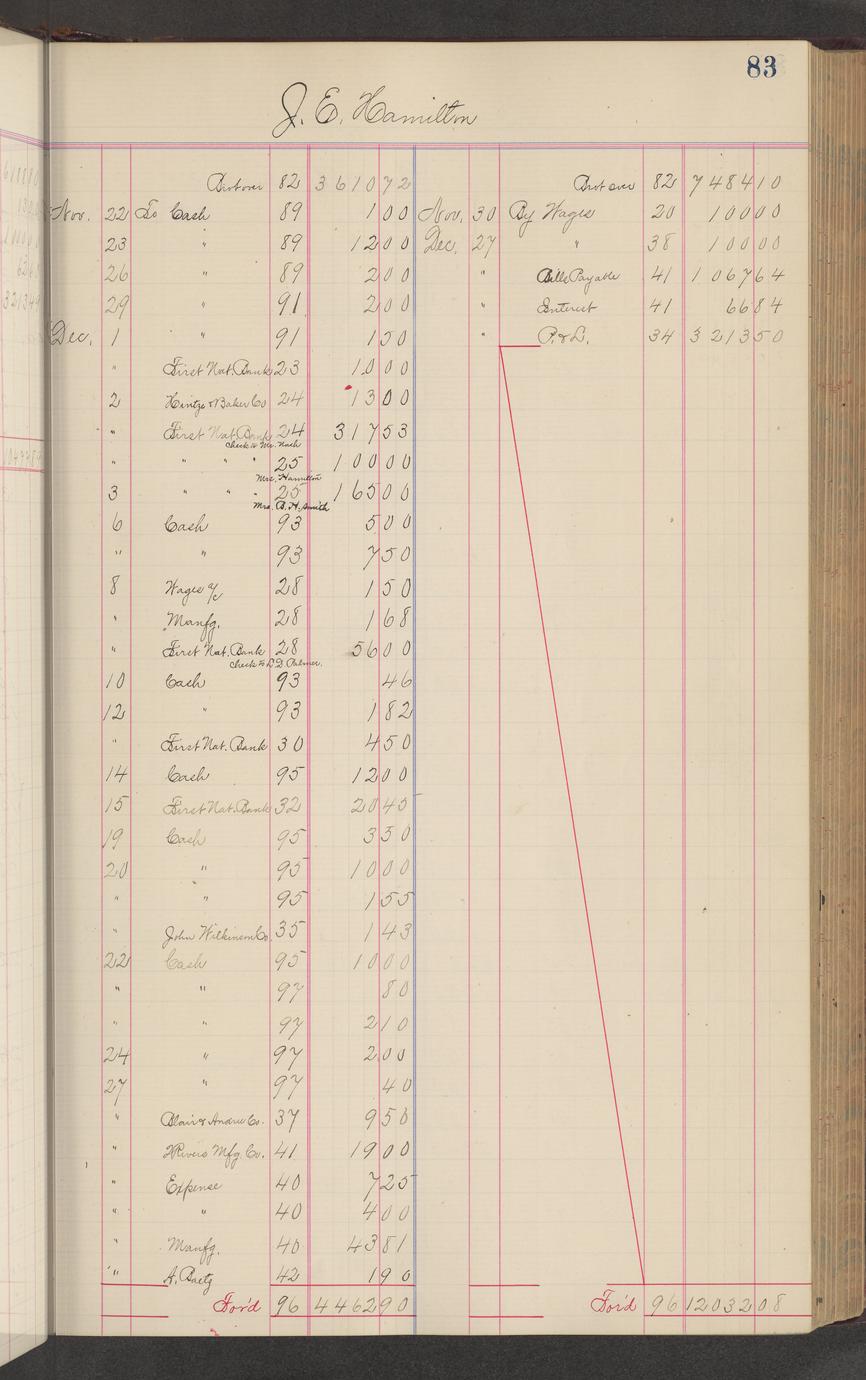 83
J. E. Hamilton
Brot over 82 3 610 72
Nov. 22 To Cash 89 1 00
23 " 89 12 00
26 " 89 2 00
29 " 91 2 00
Dec. 1 " 91 1 50
" First Nat. Bank 23 10 00
2 Hintze & Baker Co 24 13 00
" First Nat. Bank 24 317 53
check to Mr. Nash
" " " " 25 100 00
Mrs. Hamilton
3 " " " 25 165 00
Mrs. B. H. Smith
6 Cash 93 5 00
" " 93 7 50
8 Wages a/c 28 1 50
" Manfg. 28 1 68
" First Nat. Bank 28 56 00
check to D. D. Palmer.
10 Cash 93 46
12 " 93 1 82
" First Nat. Bank 30 4 50
14 Cash 95 12 00
15 First Nat. Bank 32 20 45
19 Cash 95 3 50
20 " 95 10 00
" " 95 1 55
" John Wilkinson Co. 35 1 43
22 Cash 95 10 00
" " 97 80
" " 97 2 10
24 " 97 2 00
27 " 97 40
" Blair & Andree Co. 37 9 50
" 2 Rivers Mfg. Co. 41 19 00
" Expense 40 7 25
" " 40 4 00
" Manfg. 40 43 81
" A. Baetz 42 1 90
For'd 96 4 462 90
Brot over 82 7 484 10
Nov. 30 By Wages 20 100 00
Dec. 27 " 38 100 00
" Bills Payable 41 1 067 64
" Enterest 41 66 84
" P. & L. 34 3 213 50
For'd 96 12032 08